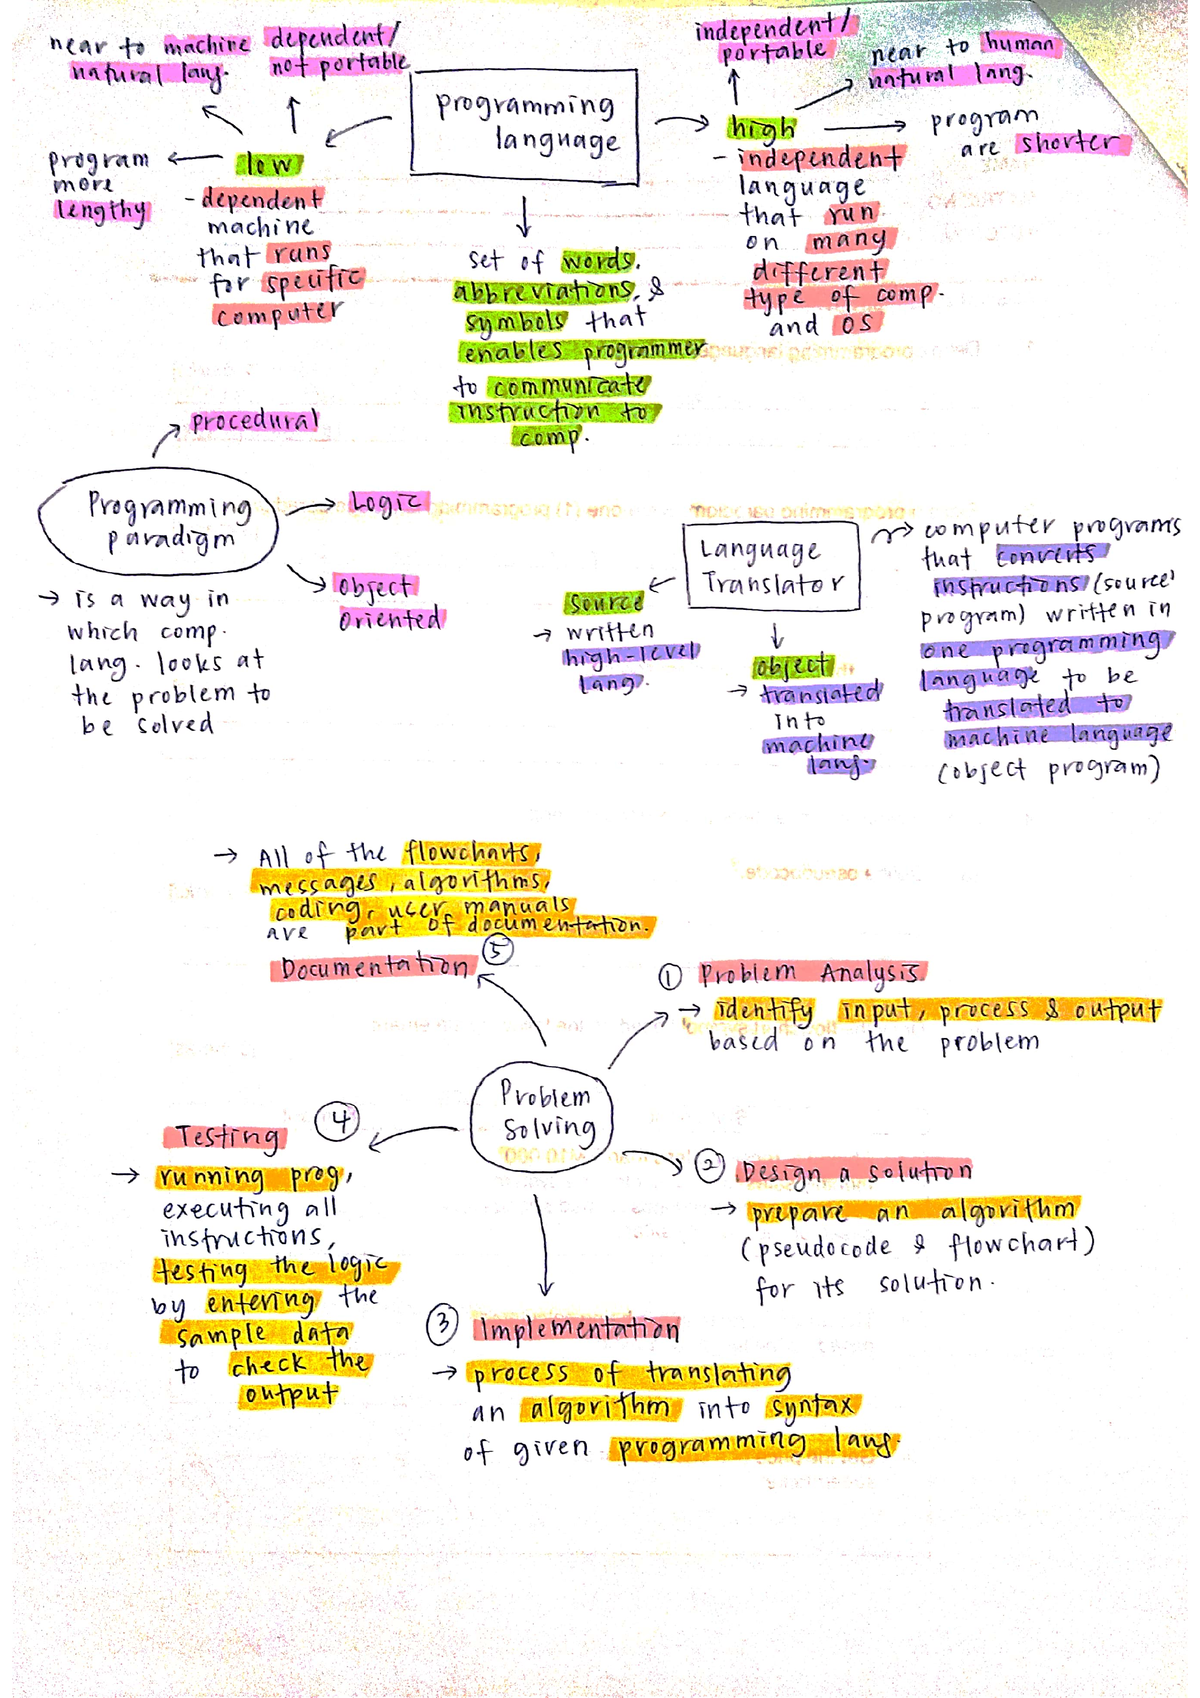 near to machine
natural lang.
dependent/
not portable
programming
language
independent/
portable
near to human
natural lang.
program
more
lengthy
low
- dependent
machine
that runs
for specific
computer
high
- independent
language
that run
on many
different
type of comp.
and OS
program
are shorter
set of words,
abbreviations, &
symbols that
enables programmer
to communicate
instruction to
comp.
procedural
Programming
paradigm
Logic
object
oriented
→ is a way in
which comp.
lang. looks at
the problem to
be solved
Language
Translator
source
→ written
high-level
lang.
object
→ translated
into
machine
lang.
computer programs
that converts
instructions (source
program) written in
one programming
language to be
translated to
machine language
(object program)
→ All of the flowcharts,
messages, algorithms,
coding, user manuals
are part of documentation.
Documentation ⑤
① Problem Analysis
→ identify input, process & output
based on the problem
Problem
solving
Testing ④
→ running prog,
executing all
instructions,
testing the logic
by entering the
sample data
to check the
output
② Design a solution
→ prepare an algorithm
(pseudocode & flowchart)
for its solution.
③ Implementation
→ process of translating
an algorithm into syntax
of given programming lang.